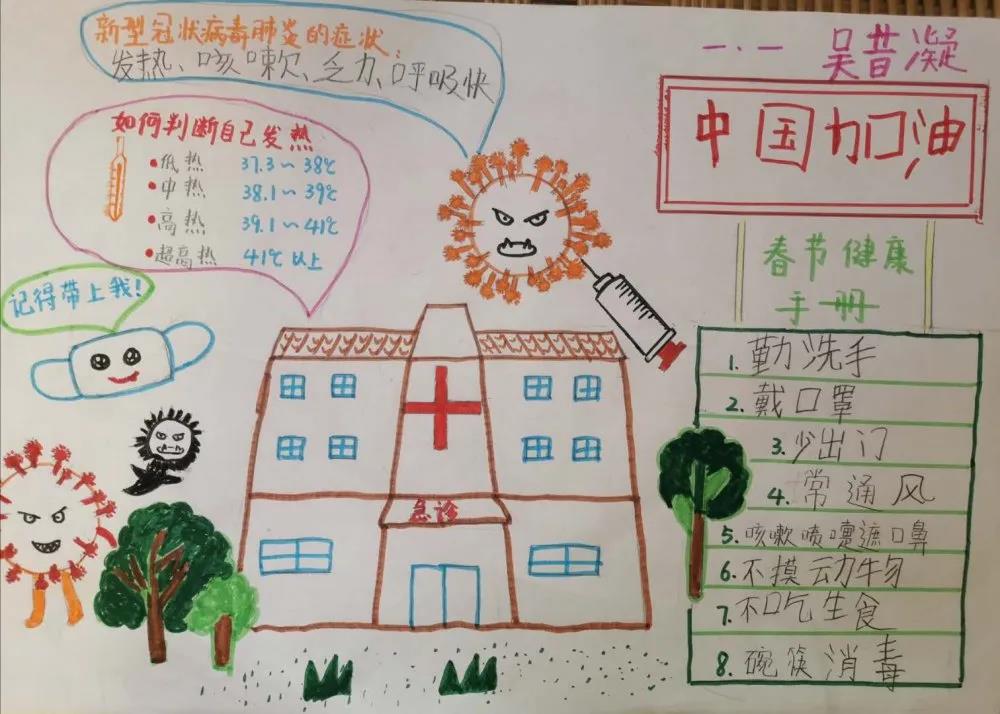 新型冠状病毒肺炎的症状：
发热、咳嗽、乏力、呼吸快
一.一 吴昔凝
中国加油
如何判断自己发热
低热 37.3～38℃
中热 38.1～39℃
高热 39.1～41℃
超高热 41℃以上
记得带上我!
春节健康
手册
急诊
1.勤洗手
2.戴口罩
3.少出门
4.常通风
5.咳嗽喷嚏遮口鼻
6.不摸动物
7.不吃生食
8.碗筷消毒